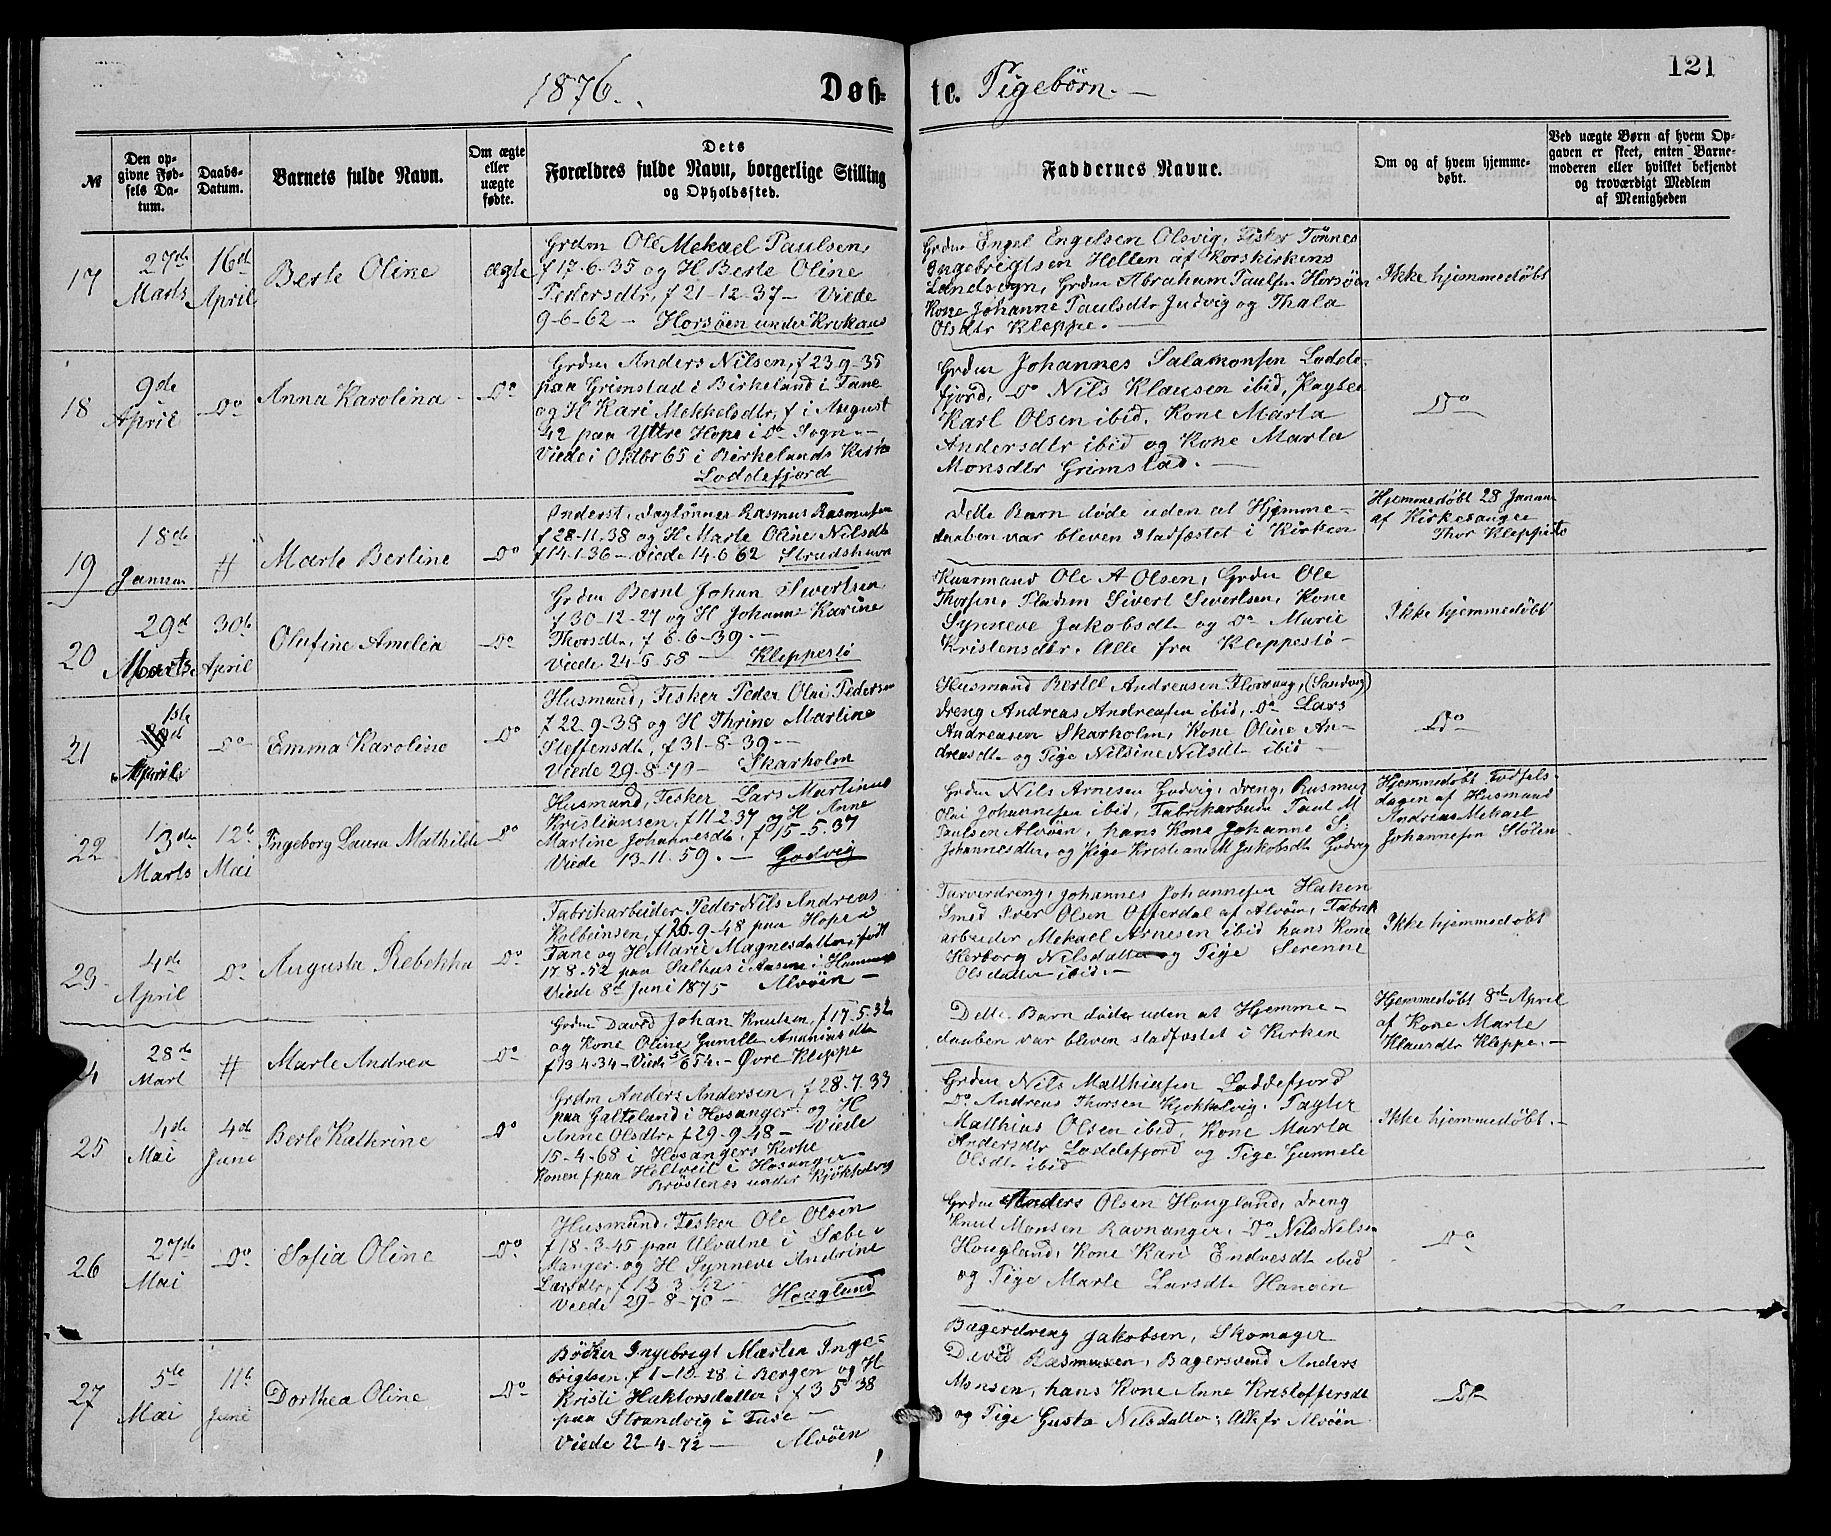 121
1876.
Døb=
te. Tigebørn.
№
Den op-
givne Fød-
sels Da-
tum.
Daabs-
Datum.
Barnets fulde Navn.
Om ægte
eller
uægte
fødte.
Dets
Forældres fulde Navn, borgerlige Stilling
og Opholdssted.
Faddernes Navne.
Om og af hvem hjemme-
døbt.
Ved uægte Børn af hvem Op-
gaven er skeet, enten Barne-
moderen eller hvilket bekjendt
og troværdigt Medlem
af Menigheden
17
27de
Marts
16de
April
Berte Oline
ægte
Grdm Ole Mekael Paulsen,
f 17-6-35 og H Berte Oline
Pedersdtr, f 21-12-37 - Viede
9-6-62 - Horsöen under Krokaas
Grdm Engel Engelsen Olsvig, Fisker Tönnes
Ingebrigtsen Hellen af Korskirkens
Landsogn, Grdm Abraham Paulsen Horsöen
Kone Johanne Paulsdtr Judvig og Thala
Olsdtr Kleppe.
Ikke hjemmedøbt
18
9de
April
Do
Anna Karolina
Do
Grdm Anders Nilsen, f 23-9-35
paa Grimstad i Birkeland i Fane
og H Kari Mekkelsdtr, f i August
42 paa Yttre Hope i Do Sogn.
Viede i Oktbr 65 i Birkelands Kirke
Loddefjord
Grdm Johannes Salamonsen Lodde-
fjord, Do Nils Klausen ibid, Pagter
Karl Olsen ibid, Kone Marta
Andersdtr ibid og Kone Marta
Monsdtr Grimstad.
Do
19
18de
Januar
#
Marte Bertine
Do
Anderst, Daglønner Rasmus Rasmussen
f 28-11-38 og H Marte Oline Nilsdtr
f 14-1-36 - Viede 14-6 62 Strudshavn
Dette Barn døde uden at Hjemme-
daaben var bleven stadfæstet i Kirken
Hjemmedøbt 28 Januar
af Kirkesanger
Thor Kleppestø
20
29d
Marts
30te
April
Olufine Amelia
Do
Grdm Bernt Johan Sivertsen
f 30-12-27 og H Johanne Karine
Thorsdtr, f 6-6-39.
Viede 24-6 58 - Kleppestö
Kvarmand Ole A Olsen, Grdm Ole
Thorsen, Pladsm Sivert Sivertsen, Kone
Synneve Jakobsdtr og Do Marie
Kristensdtr. Alle fra Kleppestö
Ikke hjemmedøbt
21
1ste
April
Do
Emma Karoline
Do
Husmand, Fisker Peder Olai Pedersen
f 22-9-38 og H Thrine Martine
Steffensdtr, f 31-8-39
Viede 29-8-70 - Skarholm
Husmand Bertel Andreasen Florvaag, (Sandvig)
Dreng Andreas Andreasen ibid, Do Lars
Andreasen Skarholm, Kone Oline An-
dreasdtr og Pige Nilsine Nilsdtr ibid
Do
22
13de
Marts
12te
Mai
Ingeborg Laura Mathilde
Do
Husmand, Fisker Lars Martinus
Kristiansen, f 11-2-37 og H Anne
Martine Johannesdtr, f 15-5-37
Viede 13-11-59. - Godvig
Grdm Nils Arnesen Godvig, Dreng, Rasmus
Olai Johannesen ibid, Fabrikarbeider Paul M
Paulsen Alvöen, hans Kone Johanne S.
Johannesdtr, og Pige Kristiane M Jakobsdtr Godvig
Hjemmedøbt Fødsels-
dagen af Husmand
Andreas Mekael
Johannesen Stölen
23
4de
April
Do
Augusta Rebekka
Do
Fabrikarbeider Peder Nils Andreas
Kolbeinsen, f 20-9-48 paa Hope i
Fane og H Marie Magnesdatter, født
17-8-52 paa Salhus i Aasene i Hammer
Viede 8de Juni 1875 Alvöen
Farverdreng, Johannes Johannesen Haken
Smed Iver Olsen Offerdal af Alvöen, Fabrik
arbeider Mekael Arnesen ibid hans Kone
Herborg Nilsdatter og Pige Serenne
Olsdatter ibid.
Ikke hjemmedøbt
4
28de
Mart
#
Marte Andrea
Do
Grdm David Johan Knutsen, f 17-5-32
og Kone Oline Gunille Ananiasdtr
f 13-4-34 - Viede 5/6 54. - Øvre Kleppe
Dette Barn døde uden at Hjemme-
daaben var bleven stadfæstet i Kirken
Hjemmedøbt 8de April
af Kone Marte
Klausdtr Kleppe.
25
4de
Mai
4de
Juni
Berte Kathrine
Do
Grdm Anders Andersen, f 28-7-33
paa Galteland i Hosanger og H
Anne Olsdtr, f 29-9-48 - Viede
15-4-68 i Hosangers Kirke
Konen f paa Heltveit i Hosanger
Bröstenes under Kjökkelvig
Grdm Nils Matthiasen Loddefjord
Do Andreas Thorsen Kjøkkelvig, Pagter
Matthias Olsen ibid, Kone Marta
Andersdtr Loddefjord og Pige Gunnele
Olsdtr ibid
Ikke hjemmedøbt.
26
27de
Mai
Do
Sofia Oline
Do
Husmand, Fisker Ole Olsen
f 18-3-45 paa Ulvatne i Sæbø i
Manger og H Synneve Andrine
Larsdtr, f 13 3 42
Viede 29-8-70 - Hougland
Grdm Anders Olsen Hougland, Dreng
Knut Monsen Ravnanger, Do Nils Nilsen
Hougland, Kone Kari Endresdtr ibid
og Pige Marte Larsdtr Hanöen
Do
27
5te
Mai
11te
Juni
Dorthea Oline
Do
Bödker Ingebrigt Marten Inge-
brigtsen, f 1-10-28 i Bergen og H
Kristi Haktorsdatter, f 3 5 38
paa Strandvig i Fuse
Viede 22-4-72 - Alvöen
Bagerdreng Jakobsen, Skomager
David Rasmussen, Bagersvend Anders
Monsen, hans Kone Anne Kristoffersdtr
og Pige Gusta Nilsdatter; Alle fr Alvöen
Do